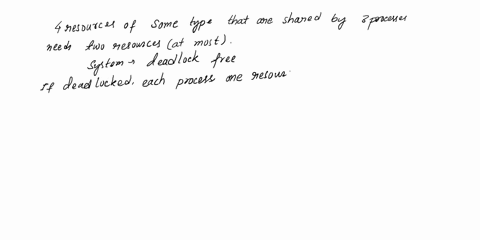 4 resources of some type that are shared by 3 processes
needs two resources (at most).
System → deadlock free
If deadlocked, each process one resour